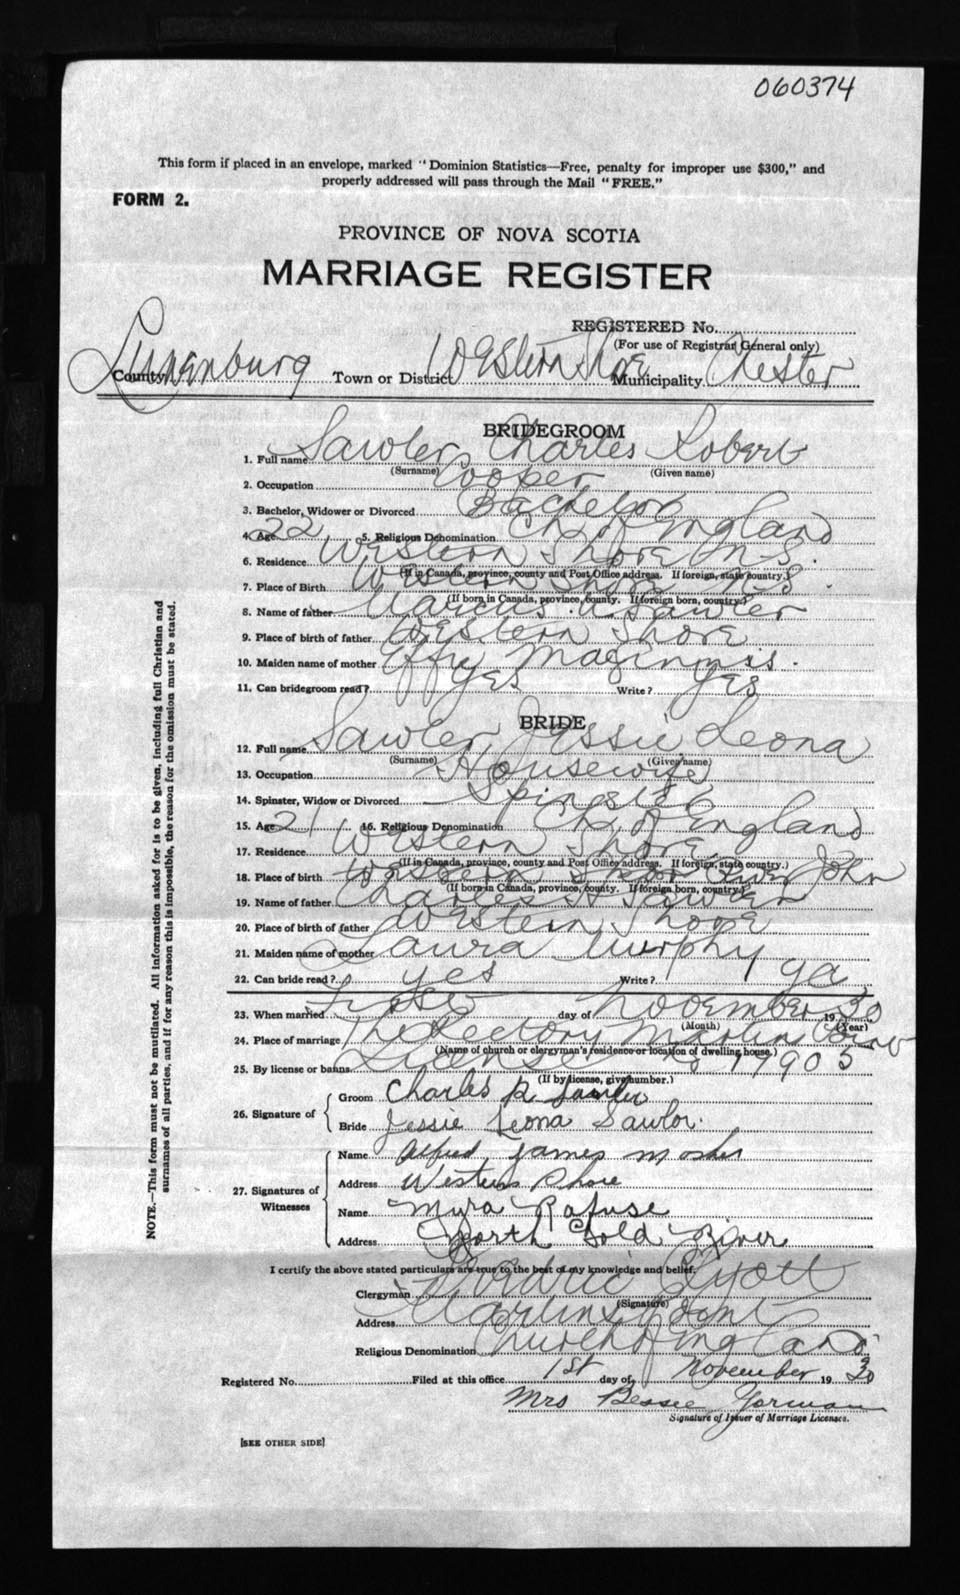 060374
This form if placed in an envelope, marked "Dominion Statistics—Free, penalty for improper use $300," and
properly addressed will pass through the Mail "FREE."
FORM 2.
PROVINCE OF NOVA SCOTIA
MARRIAGE REGISTER
REGISTERED No.
(For use of Registrar General only)
County Lunenburg Town or District Western Shore Municipality Chester
BRIDEGROOM
1. Full name Sawler Charles Robert
(Surname) (Given name)
2. Occupation Cooper
3. Bachelor, Widower or Divorced Bachelor
4. Age 22 5. Religious Denomination Ch of England
6. Residence Western Shore N.S.
(If in Canada, province, county and Post Office address. If foreign, state country.)
7. Place of Birth Western Shore N.S.
(If born in Canada, province, county. If foreign born, country.)
8. Name of father Marcus A Sawler
9. Place of birth of father Western Shore
10. Maiden name of mother Effry Maginniss.
11. Can bridegroom read? Yes Write? Yes
BRIDE
12. Full name Sawler Jessie Leona
(Surname) (Given name)
13. Occupation Housewife
14. Spinster, Widow or Divorced Spinster
15. Age 21 16. Religious Denomination Ch. of England
17. Residence Western Shore
(If in Canada, province, county and Post Office address. If foreign, state country.)
18. Place of birth Western Shore River John
(If born in Canada, province, county. If foreign born, country.)
19. Name of father Charles H Sawler
20. Place of birth of father Western Shore
21. Maiden name of mother Laura Murphy
22. Can bride read? yes Write?
23. When married First day of November 1930
(Month) (Year)
24. Place of marriage The Rectory Martins
(Name of church or clergyman's residence or location of dwelling house.)
25. By license or banns License 17905
(If by license, give number.)
26. Signature of
Groom Charles R. Sawler
Bride Jessie Leona Sawlor.
27. Signatures of Witnesses
Name Alfred James Mosher
Address Western Shore
Name Myra Rafuse
Address North Gold River
I certify the above stated particulars are true to the best of my knowledge and belief.
Clergyman
(Signature)
Address Martins Point
Religious Denomination Church of England
Registered No. Filed at this office 1st day of November 1930
Mrs Bessie
Signature of Issuer of Marriage Licenses.
[SEE OTHER SIDE]
NOTE.—This form must not be mutilated. All information asked for is to be given, including full Christian and
surnames of all parties, and if for any reason this is impossible, the reason for the omission must be stated.